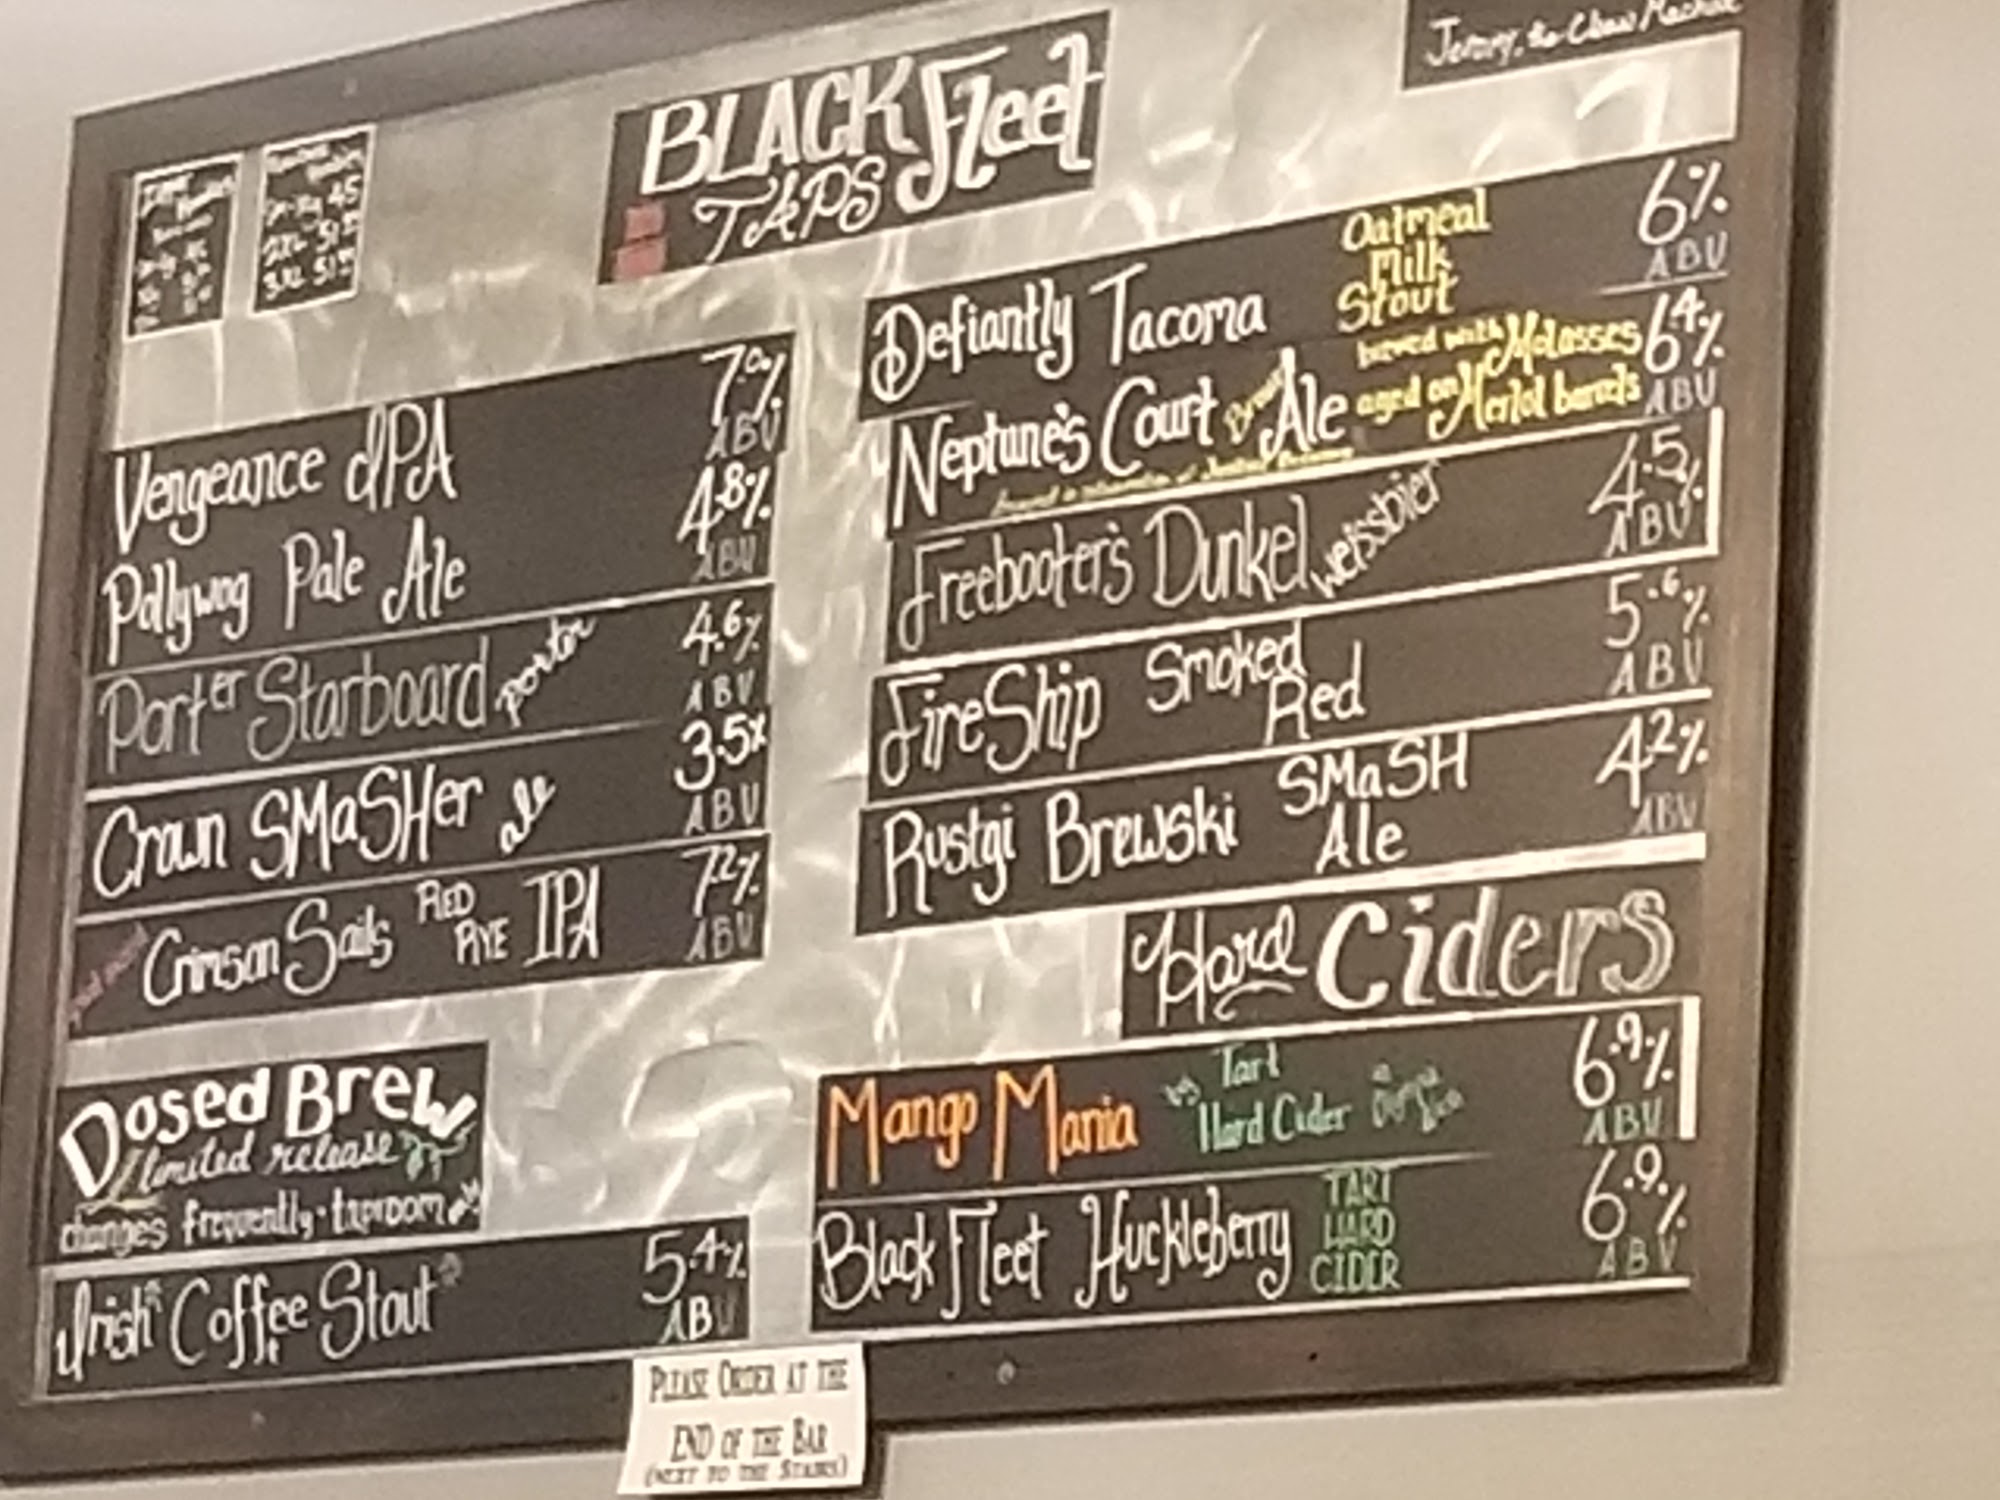 Jeremy, the Claw Machine
BLACK Fleet
TAPS
45
2XL
3XL
Vengeance IPA 7.0% ABV
Pollywog Pale Ale 4.8% ABV
Porter Starboard Porter 4.6% ABV
Crown SMaSHer ale 3.5% ABV
Crimson Sails RED RYE IPA 7.2% ABV
Dosed Brew
limited release
changes frequently · taproom
Irish Coffee Stout 5.4% ABV
Defiantly Tacoma Oatmeal Milk Stout 6% ABV
Neptune's Court Brown Ale brewed with Molasses aged on Merlot barrels 6.4% ABV
Freebooter's Dunkel Weissbier 4.5% ABV
FireShip Smoked Red 5.6% ABV
Rustgi Brewski SMaSH Ale 4.2% ABV
Hard Ciders
Mango Mania Tart Hard Cider 6.9% ABV
Black Fleet Huckleberry TART HARD CIDER 6.9% ABV
PLEASE ORDER AT THE
END OF THE BAR
(NEXT TO THE STAIRS)